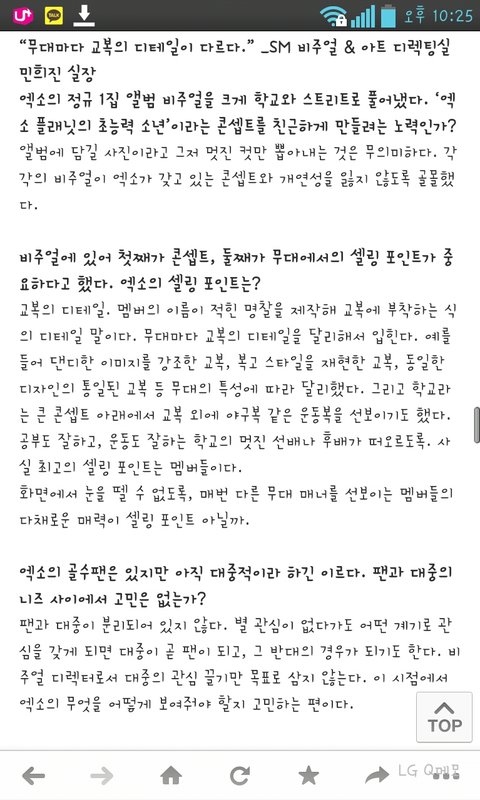 TALK
오후 10:25
“무대마다 교복의 디테일이 다르다.” _SM 비주얼 & 아트 디렉팅실
민희진 실장
엑소의 정규 1집 앨범 비주얼을 크게 학교와 스트리트로 풀어냈다. ‘엑
소 플래닛의 초능력 소년’이라는 콘셉트를 친근하게 만들려는 노력인가?
앨범에 담길 사진이라고 그저 멋진 컷만 뽑아내는 것은 무의미하다. 각
각의 비주얼이 엑소가 갖고 있는 콘셉트와 개연성을 잃지 않도록 골몰했
다.
비주얼에 있어 첫째가 콘셉트, 둘째가 무대에서의 셀링 포인트가 중
요하다고 했다. 엑소의 셀링 포인트는?
교복의 디테일. 멤버의 이름이 적힌 명찰을 제작해 교복에 부착하는 식
의 디테일 말이다. 무대마다 교복의 디테일을 달리해서 입힌다. 예를
들어 댄디한 이미지를 강조한 교복, 복고 스타일을 재현한 교복, 동일한
디자인의 통일된 교복 등 무대의 특성에 따라 달리했다. 그리고 학교라
는 큰 콘셉트 아래에서 교복 외에 야구복 같은 운동복을 선보이기도 했다.
공부도 잘하고, 운동도 잘하는 학교의 멋진 선배나 후배가 떠오르도록. 사
실 최고의 셀링 포인트는 멤버들이다.
화면에서 눈을 뗄 수 없도록, 매번 다른 무대 매너를 선보이는 멤버들의
다채로운 매력이 셀링 포인트 아닐까.
엑소의 골수팬은 있지만 아직 대중적이라 하긴 이르다. 팬과 대중의
니즈 사이에서 고민은 없는가?
팬과 대중이 분리되어 있지 않다. 별 관심이 없다가도 어떤 계기로 관
심을 갖게 되면 대중이 곧 팬이 되고, 그 반대의 경우가 되기도 한다. 비
주얼 디렉터로서 대중의 관심 끌기만 목표로 삼지 않는다. 이 시점에서
엑소의 무엇을 어떻게 보여줘야 할지 고민하는 편이다.
TOP
LG Q메모